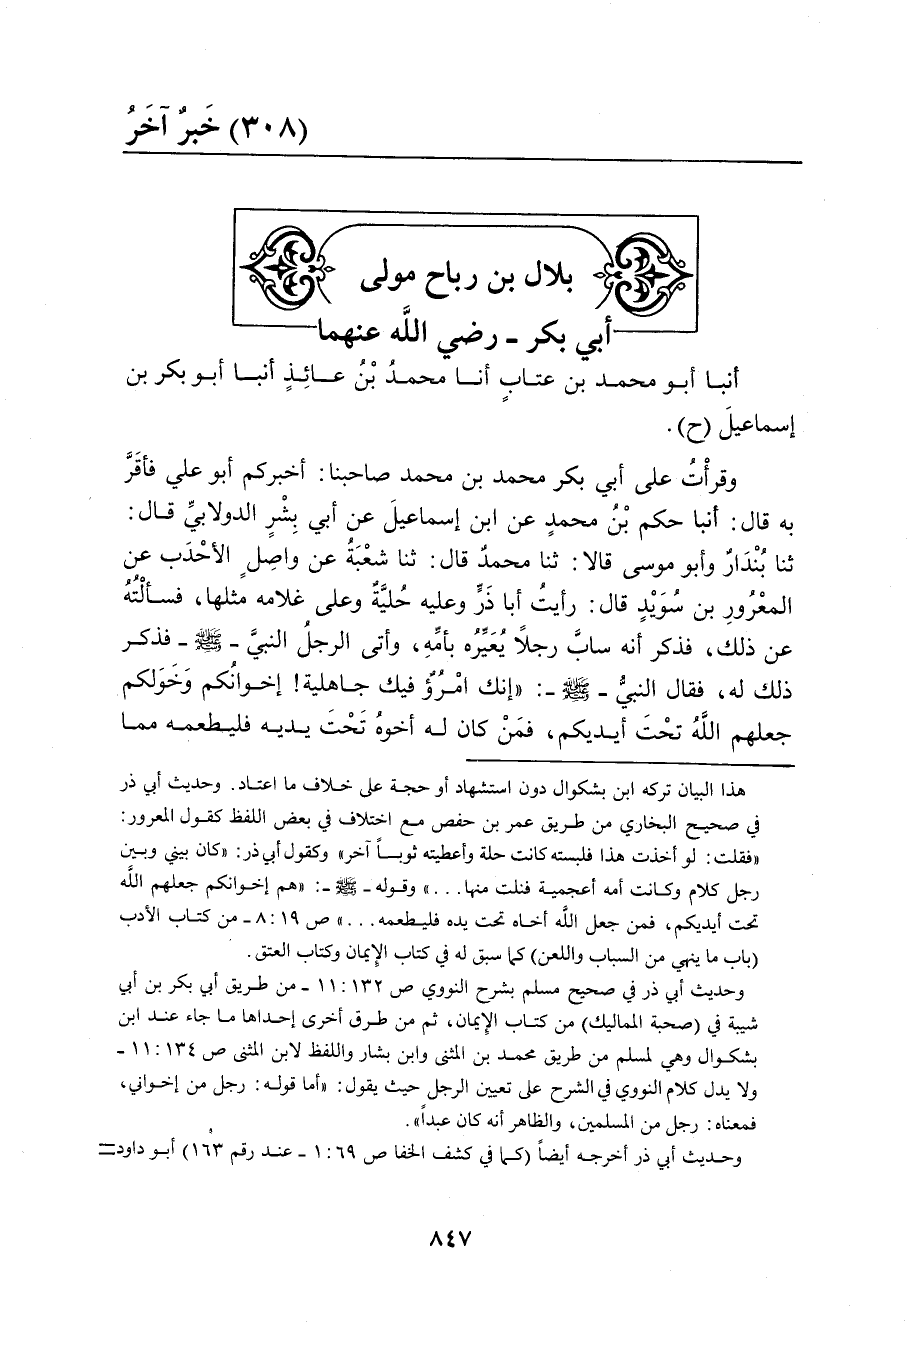 (٣٠٨) خَبرٌ آخَرُ
بلال بن رباح مولى
أبي بكر ـ رضي اللَّه عنهما
أنبا أبو محمد بن عتابٍ أنا محمدُ بْنُ عائِذٍ أنبا أبو بكر بن
إسماعيلَ (ح).
وقرأْتُ على أبي بكر محمد بن محمد صاحبنا: أخبركم أبو علي فأقَرَّ
به قال: أنبا حكم بْنُ محمدٍ عن ابن إسماعيلَ عن أبي بِشْرٍ الدولابيِّ قال:
ثنا بُنْدَارٌ وأبو موسى قالا: ثنا محمدٌ قال: ثنا شعْبَةُ عن واصِلٍ الأحْدَب عن
المعْرُورِ بن سُوَيْدٍ قال: رأيتُ أبا ذَرٍّ وعليه حُليَّةٌ وعلى غلامه مثلها، فسألْتهُ
عن ذلك، فذكر أنه سابَّ رجلاً يُعَيِّرُه بأمِّهِ، وأتى الرجلُ النبيَّ ـ ﷺ ـ فذكر
ذلك له، فقال النبيُّ ـ ﷺ ـ: «إنك امْرُؤٌ فيك جاهلية! إخوانُكم وَخَوَلكم
جعلهم اللَّهُ تحْتَ أيديكم، فمَنْ كان له أخوهُ تَحْتَ يديه فليطعمه مما
هذا البيان تركه ابن بشكوال دون استشهاد أو حجة على خلاف ما اعتاد. وحديث أبي ذر
في صحيح البخاري من طريق عمر بن حفص مع اختلاف في بعض اللفظ كقول المعرور:
«فقلت: لو أخذت هذا فلبسته كانت حلة وأعطيته ثوباً آخر» وكقول أبي ذر: «كان بيني وبين
رجل كلام وكانت أمه أعجمية فنلت منها...» وقوله ـ ﷺ ـ: «هم إخوانكم جعلهم اللَّه
تحت أيديكم، فمن جعل اللَّه أخاه تحت يده فليطعمه...» ص ٨:١٩ ـ من كتاب الأدب
(باب ما ينهى من السباب واللعن) كما سبق له في كتاب الإيمان وكتاب العتق.
وحديث أبي ذر في صحيح مسلم بشرح النووي ص ١١:١٣٢ ـ من طريق أبي بكر بن أبي
شيبة في (صحبة المماليك) من كتاب الإيمان، ثم من طرق أخرى إحداها ما جاء عند ابن
بشكوال وهي لمسلم من طريق محمد بن المثنى وابن بشار واللفظ لابن المثنى ص ١١:١٣٤ ـ
ولا يدل كلام النووي في الشرح على تعيين الرجل حيث يقول: «أما قوله: رجل من إخواني،
فمعناه: رجل من المسلمين، والظاهر أنه كان عبداً».
وحديث أبي ذر أخرجه أيضاً (كما في كشف الخفا ص ١:٦٩ ـ عند رقم ١٦٣) أبو داود=
٨٤٧